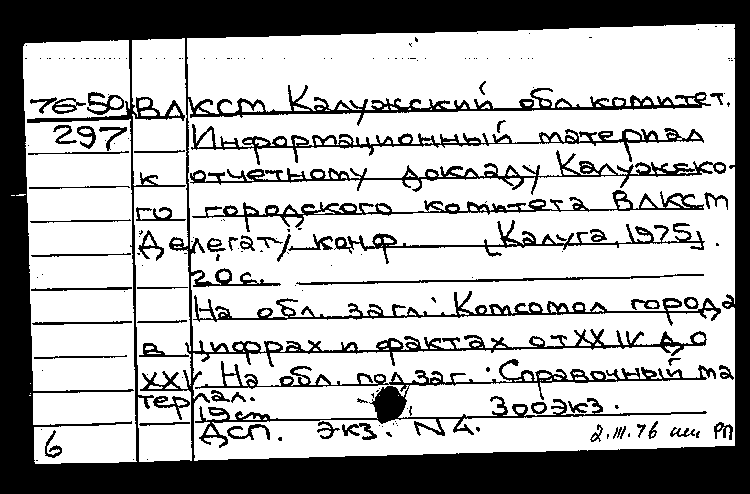 76-50к ВЛКСМ. Калужский обл. комитет.
297 Информационный материал
к отчетному докладу Калужско-
го городского комитета ВЛКСМ
Делегату конф. [Калуга, 1975].
20 с.
На обл. загл.: Комсомол города
в цифрах и фактах от XXIV до
XXV. На обл. подзаг.: Справочный ма
териал.
19 см 300 экз.
ДСП. Экз. N 4.
6 2.III.76 РП